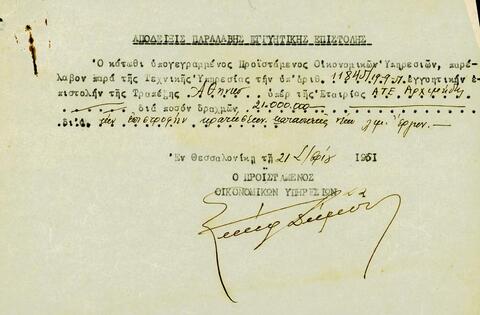 ΑΠΟΔΕΙΞΙΣ ΠΑΡΑΛΑΒΗΣ ΕΓΓΥΗΤΙΚΗΣ ΕΠΙΣΤΟΛΗΣ
Ὁ κάτωθι ὑπογεγραμμένος Προϊστάμενος Οἰκονομικῶν Ὑπηρεσιῶν, παρέ-
λαβον παρά τῆς Τεχνικῆς Ὑπηρεσίας τήν ὑπ'ἀριθ. ἐγγυητικήν ἐ-
πιστολήν τῆς Τραπέζης Ἀθηνῶν ὑπέρ τῆς Ἑταιρίας Α.Τ.Ε. Ἀρχιμήδης
διά ποσόν δραχμῶν 21.000.000
διά τήν ἐπιστροφήν κρατήσεων κατασκευῆς νέων λιμ. ἔργων.
Ἐν Θεσσαλονίκῃ τῇ 21 1951
Ο ΠΡΟΪΣΤΑΜΕΝΟΣ
ΟΙΚΟΝΟΜΙΚΩΝ ΥΠΗΡΕΣΙΩΝ